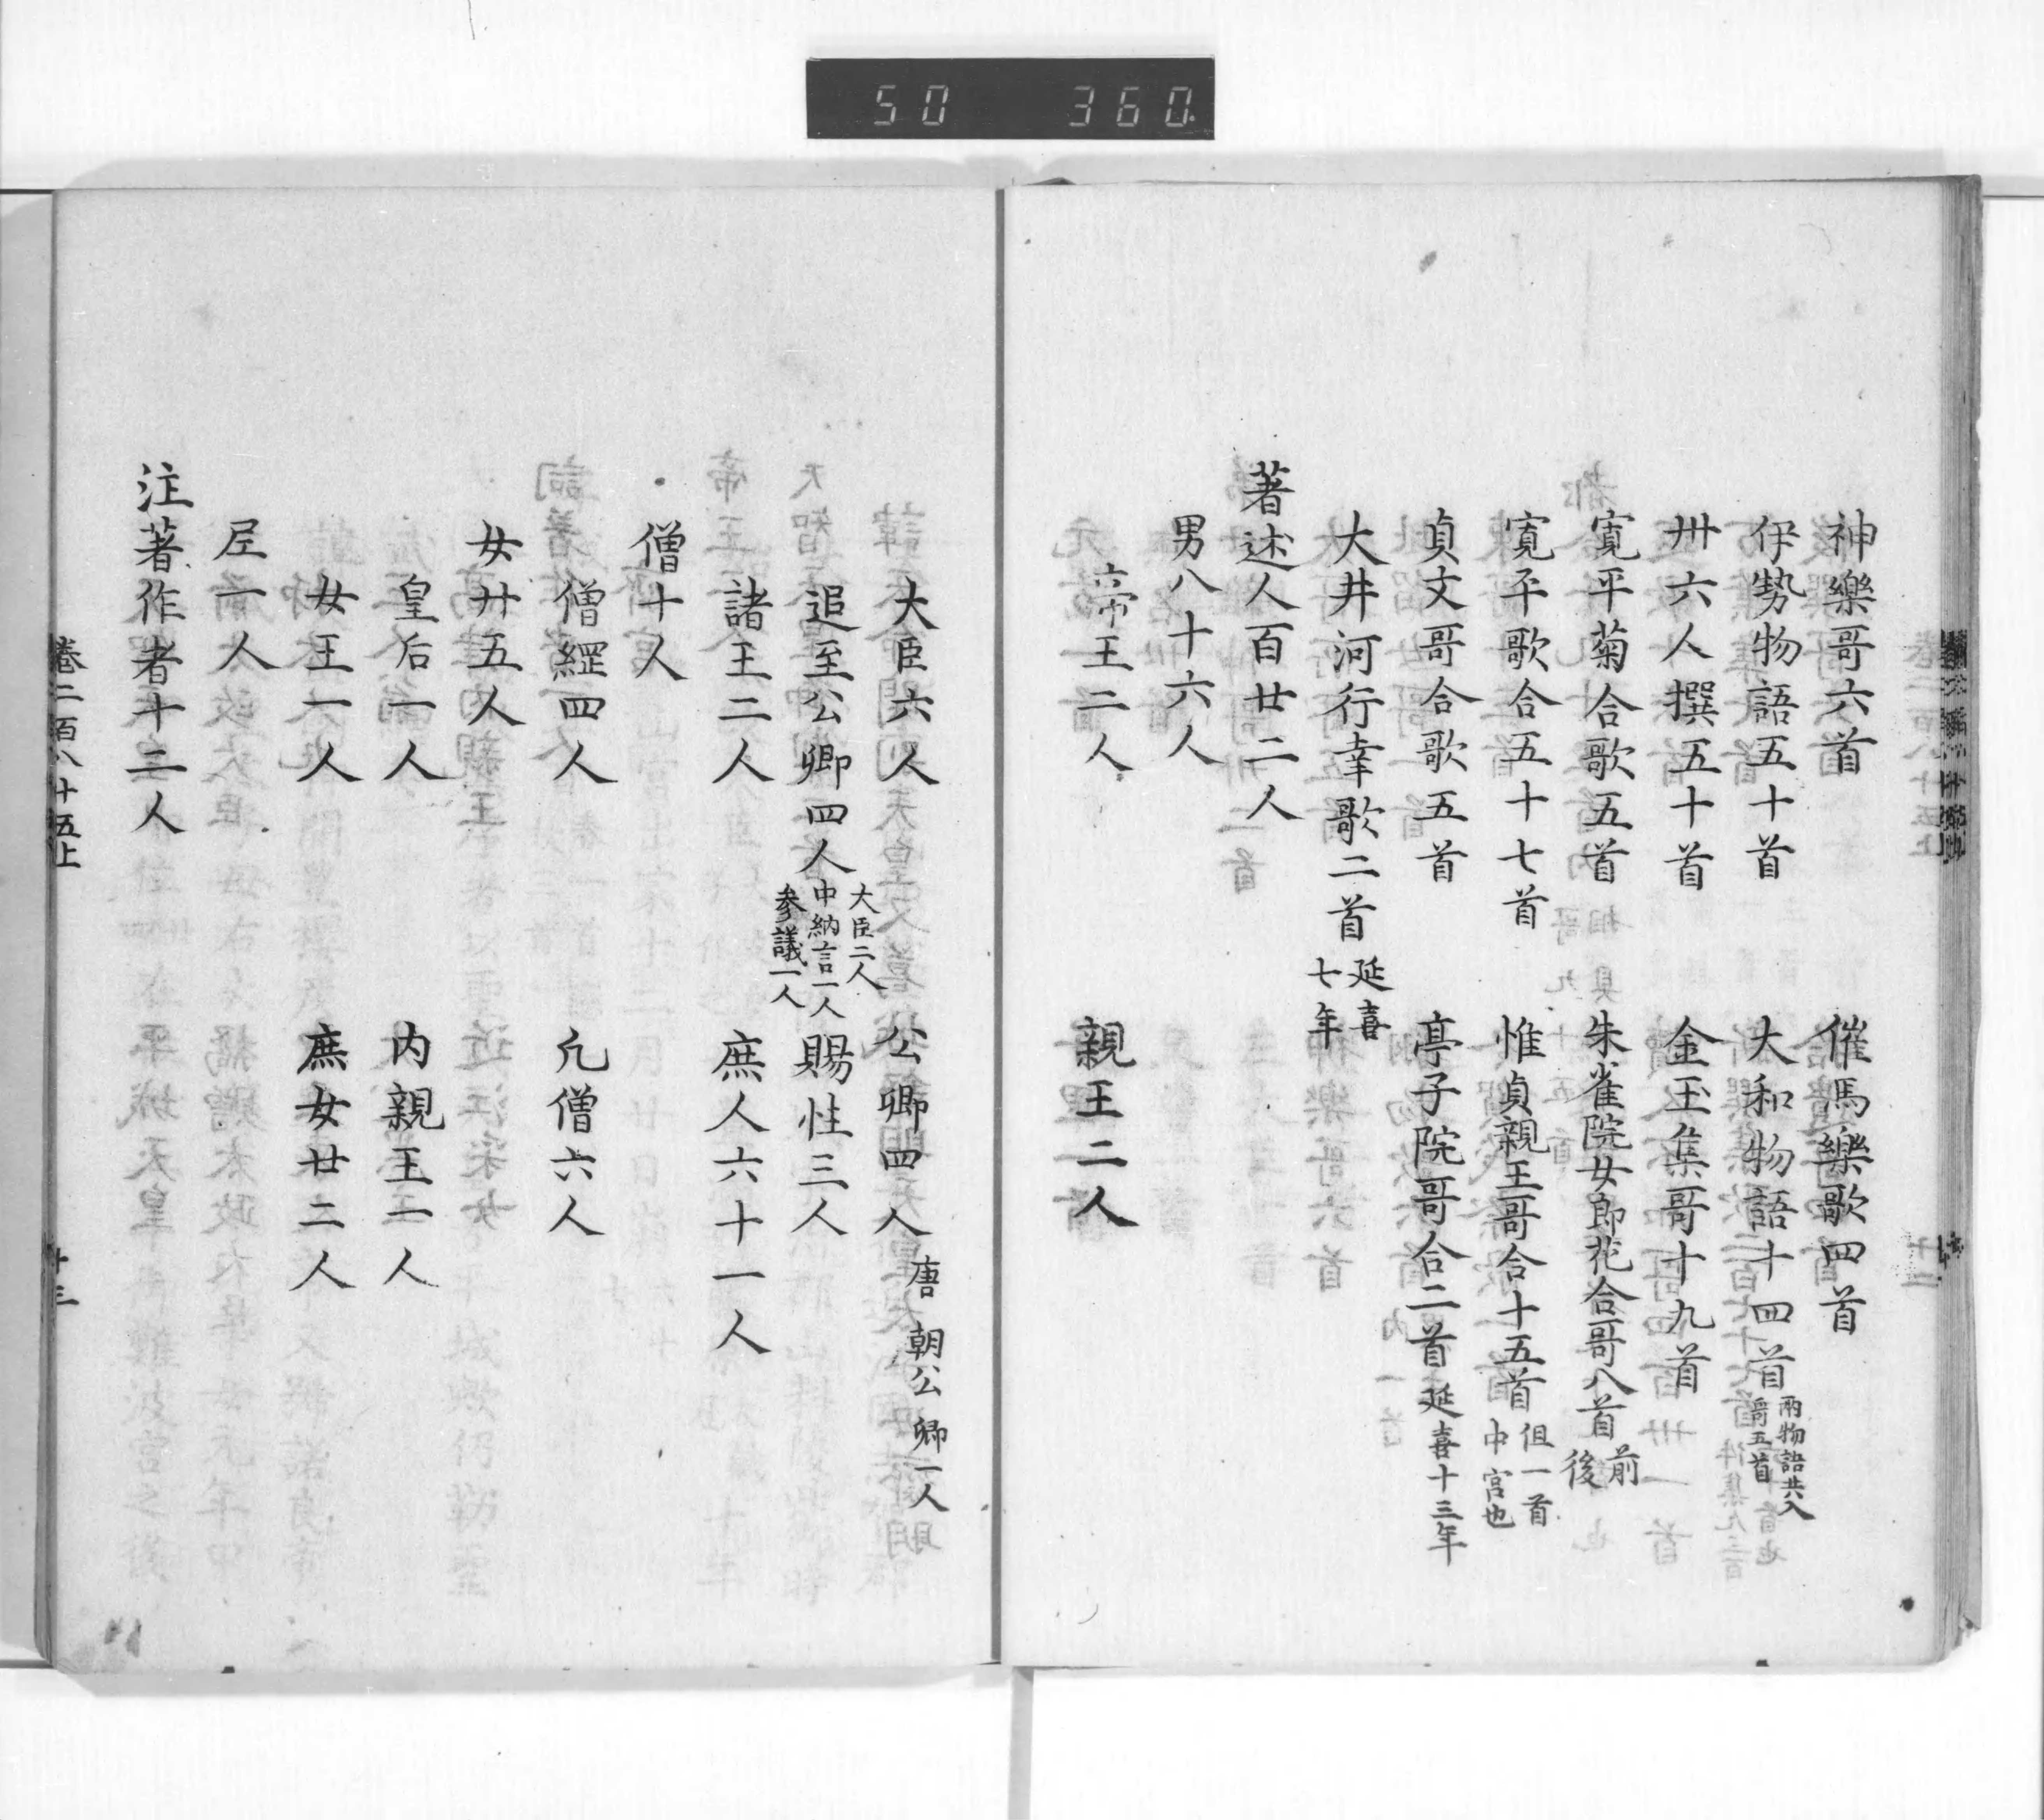 50 360
神樂哥六首 催馬樂歌四首
伊勢物語五十首 大和物語十四首 兩物語共入哥五首
卅六人撰五十首 金玉集哥十九首
寛平菊合歌五首 朱雀院女郎花合哥八首 前後
寛平歌合五十七首 惟貞親王哥合十五首 但一首中宮也
貞文哥合歌五首 亭子院哥合二首 延喜十三年
大井河行幸歌二首 延喜七年
著述人百廿二人
男八十六人
帝王二人 親王二人
大臣六人 公卿四人 唐朝公卿一人
追至公卿四人 大臣二人中納言一人参議一人 賜性三人
諸王二人 庶人六十一人
僧十人
僧綱四人 凡僧六人
女廿五人
皇后一人 内親王一人
女王一人 庶女廿二人
尼一人
注著作者十二人
巻二百八十五上 十三